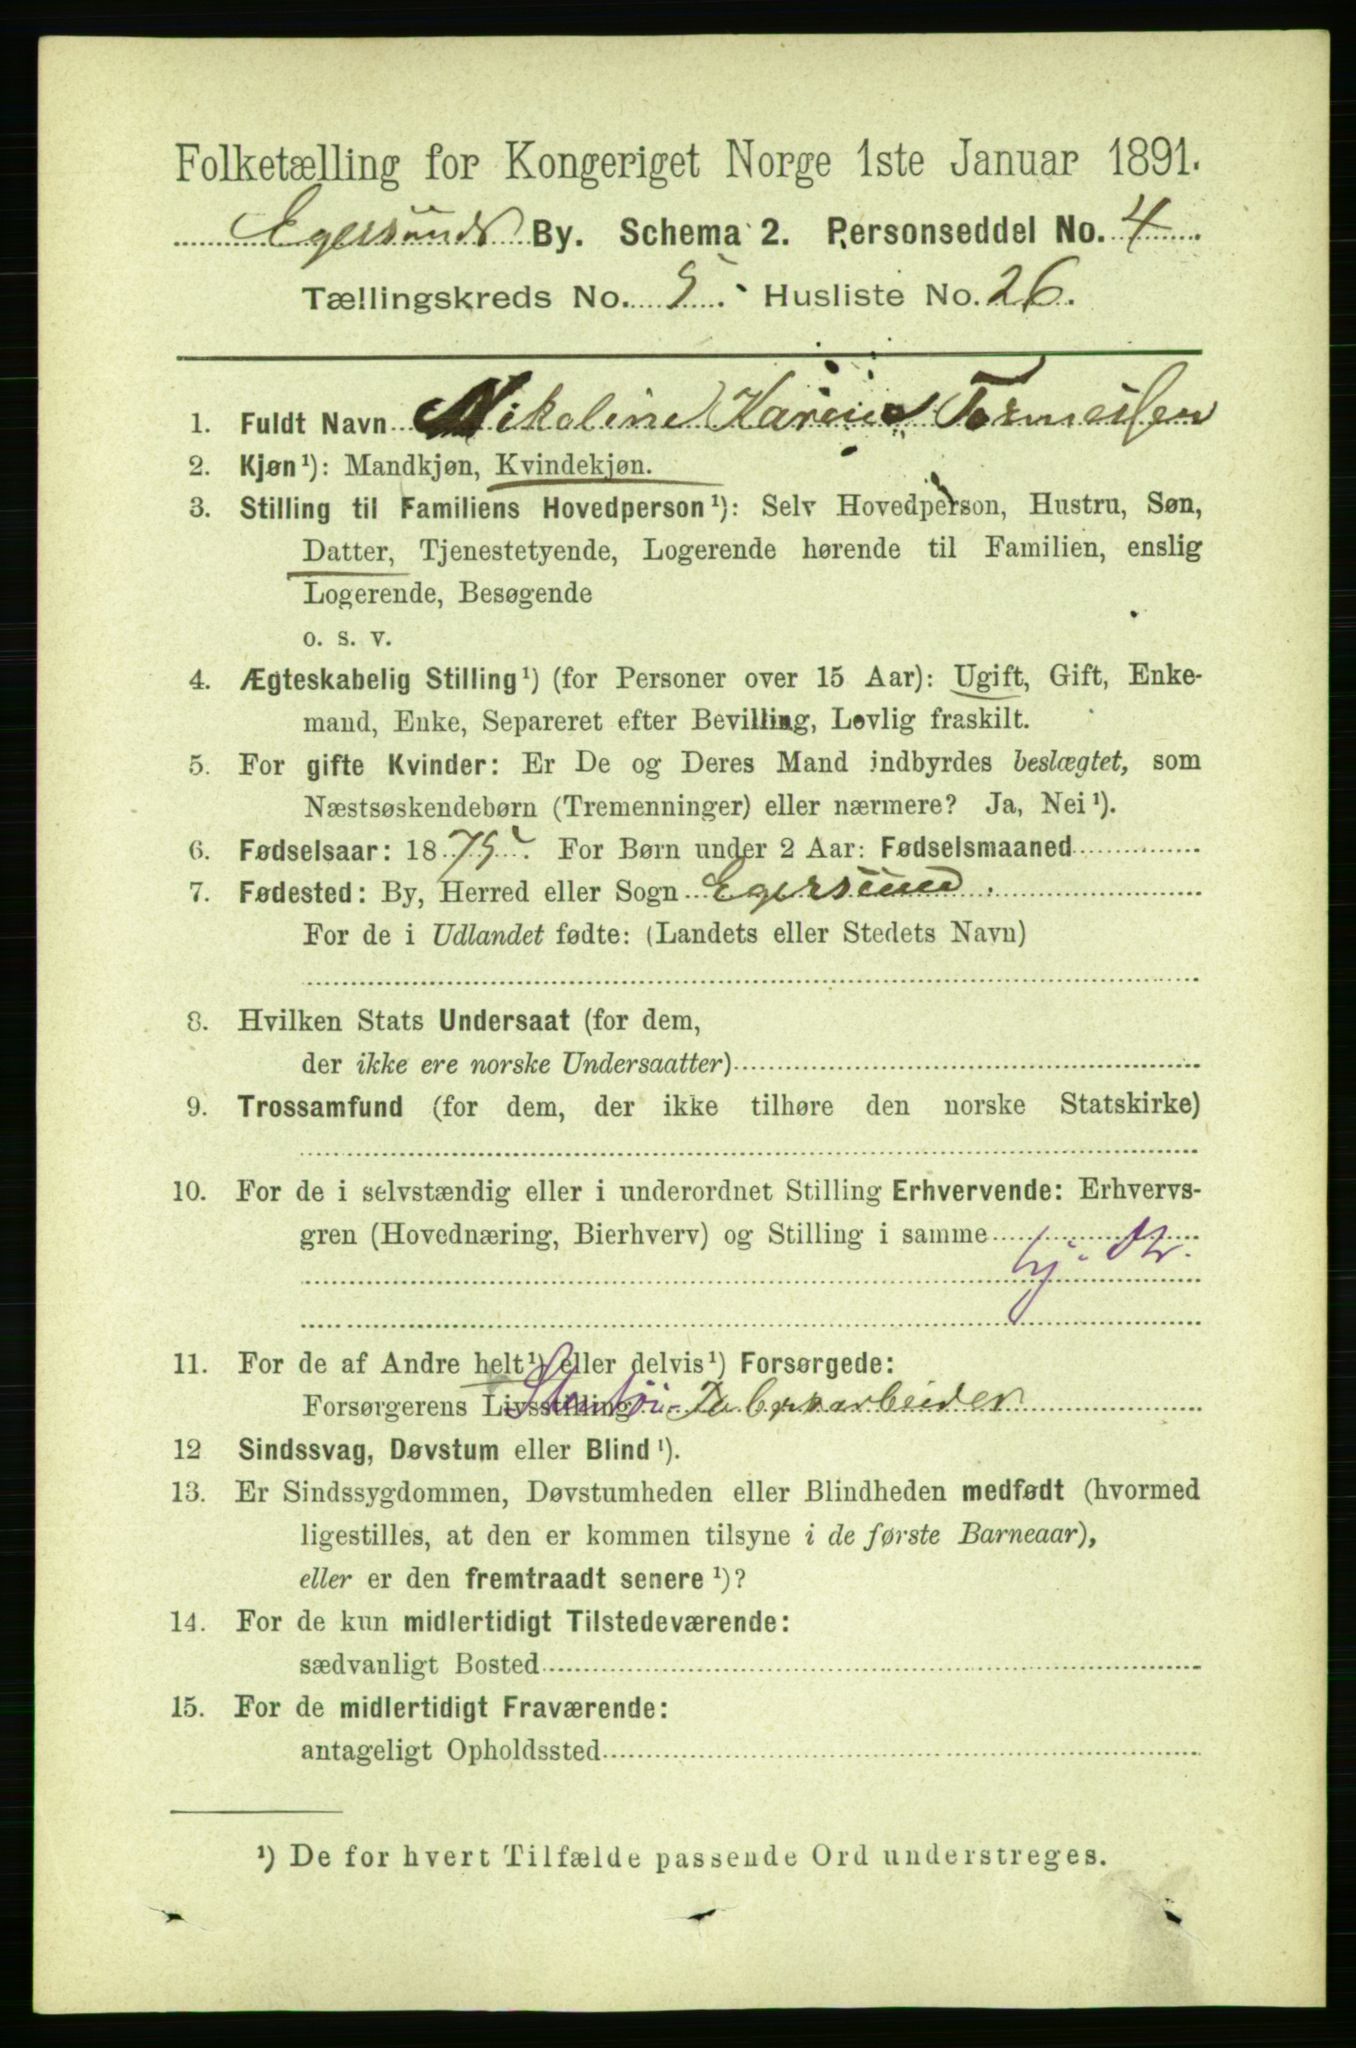 Folketælling for Kongeriget Norge 1ste Januar 1891.
Egersunds By. Schema 2. Personseddel No. 4
Tællingskreds No. 5. Husliste No. 26.
1. Fuldt Navn Nikoline Karine
2. Kjøn¹): Mandkjøn, Kvindekjøn.
3. Stilling til Familiens Hovedperson¹): Selv Hovedperson, Hustru, Søn,
Datter, Tjenestetyende, Logerende hørende til Familien, enslig
Logerende, Besøgende
o. s. v.
4. Ægteskabelig Stilling¹) (for Personer over 15 Aar): Ugift, Gift, Enke-
mand, Enke, Separeret efter Bevilling, Lovlig fraskilt.
5. For gifte Kvinder: Er De og Deres Mand indbyrdes beslægtet, som
Næstsøskendebørn (Tremenninger) eller nærmere? Ja, Nei¹).
6. Fødselsaar: 1875. For Børn under 2 Aar: Fødselsmaaned
7. Fødested: By, Herred eller Sogn Egersund.
For de i Udlandet fødte: (Landets eller Stedets Navn)
8. Hvilken Stats Undersaat (for dem,
der ikke ere norske Undersaatter)
9. Trossamfund (for dem, der ikke tilhøre den norske Statskirke)
10. For de i selvstændig eller i underordnet Stilling Erhvervende: Erhvervs-
gren (Hovednæring, Bierhverv) og Stilling i samme
11. For de af Andre helt¹) eller delvis¹) Forsørgede:
Forsørgerens Livsstilling Stentøi-
12 Sindssvag, Døvstum eller Blind¹).
13. Er Sindssygdommen, Døvstumheden eller Blindheden medfødt (hvormed
ligestilles, at den er kommen tilsyne i de første Barneaar),
eller er den fremtraadt senere¹)?
14. For de kun midlertidigt Tilstedeværende:
sædvanligt Bosted
15. For de midlertidigt Fraværende:
antageligt Opholdssted
¹) De for hvert Tilfælde passende Ord understreges.